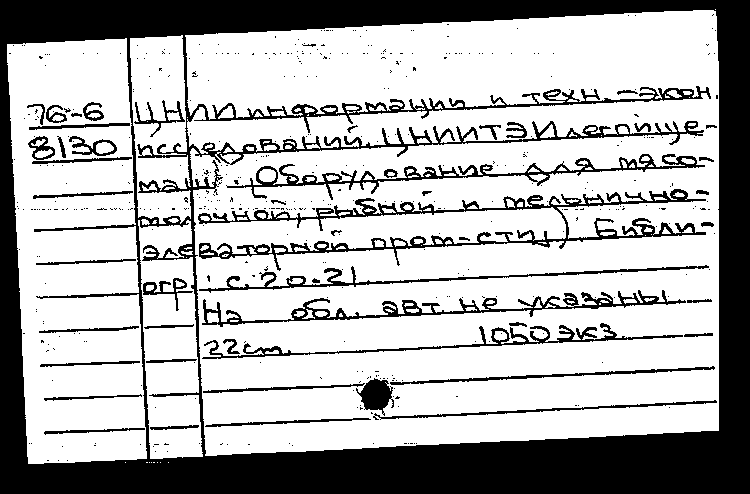 76-6 ЦНИИ информации и техн.-экон.
8130 исследований. ЦНИИТЭИлегпище-
маш. (Оборудование для мясо-
молочной, рыбной и мельнично-
элеваторной пром-сти). Библи-
огр.: с. 20-21
На обл. авт. не указаны
22см. 1050 экз